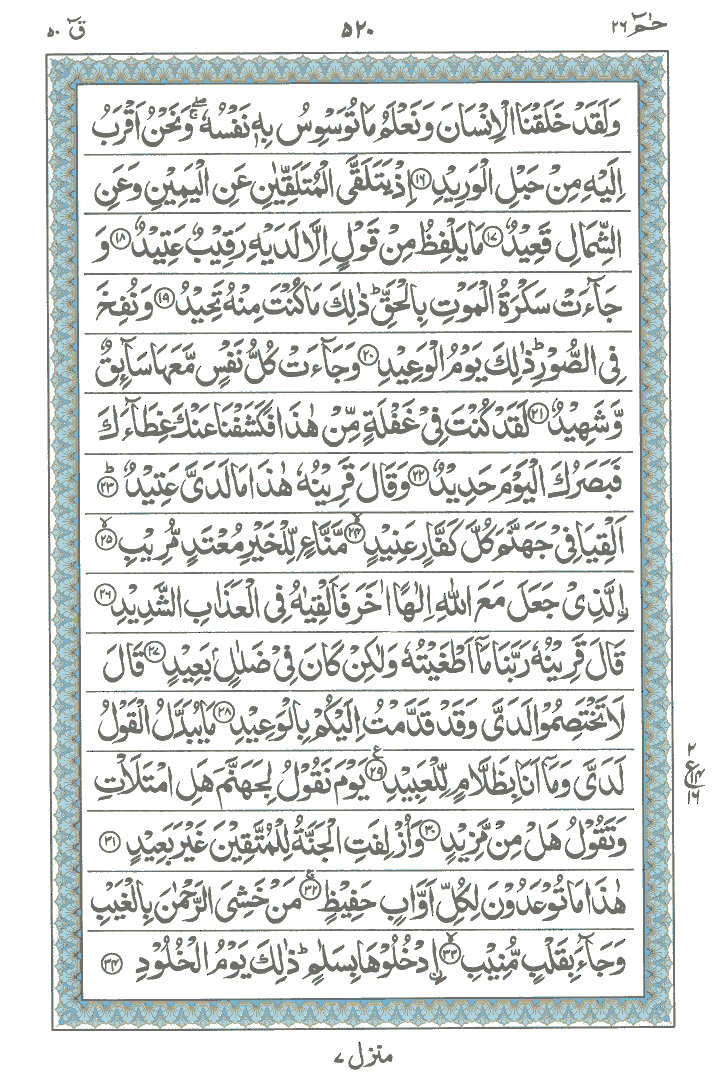 حٰمٓ ۲۶ ۵۲۰ قٓ ۵۰
وَلَقَدْ خَلَقْنَا الْاِنْسَانَ وَنَعْلَمُ مَا تُوَسْوِسُ بِهٖ نَفْسُهٗ ۖۚ وَنَحْنُ اَقْرَبُ
اِلَيْهِ مِنْ حَبْلِ الْوَرِيْدِ ﴿۱۶﴾ اِذْ يَتَلَقَّى الْمُتَلَقِّيٰنِ عَنِ الْيَمِيْنِ وَعَنِ
الشِّمَالِ قَعِيْدٌ ﴿۱۷﴾ مَا يَلْفِظُ مِنْ قَوْلٍ اِلَّا لَدَيْهِ رَقِيْبٌ عَتِيْدٌ ﴿۱۸﴾ وَ
جَآءَتْ سَكْرَةُ الْمَوْتِ بِالْحَقِّ ؕ ذٰلِكَ مَا كُنْتَ مِنْهُ تَحِيْدُ ﴿۱۹﴾ وَنُفِخَ
فِى الصُّوْرِ ؕ ذٰلِكَ يَوْمُ الْوَعِيْدِ ﴿۲۰﴾ وَجَآءَتْ كُلُّ نَفْسٍ مَّعَهَا سَآئِقٌ
وَّشَهِيْدٌ ﴿۲۱﴾ لَقَدْ كُنْتَ فِىْ غَفْلَةٍ مِّنْ هٰذَا فَكَشَفْنَا عَنْكَ غِطَآءَكَ
فَبَصَرُكَ الْيَوْمَ حَدِيْدٌ ﴿۲۲﴾ وَقَالَ قَرِيْنُهٗ هٰذَا مَا لَدَىَّ عَتِيْدٌ ؕ﴿۲۳﴾
اَلْقِيَا فِىْ جَهَنَّمَ كُلَّ كَفَّارٍ عَنِيْدٍ ۙ﴿۲۴﴾ مَّنَّاعٍ لِّلْخَيْرِ مُعْتَدٍ مُّرِيْبٍ ۙ﴿۲۵﴾
ۨالَّذِىْ جَعَلَ مَعَ اللّٰهِ اِلٰهًا اٰخَرَ فَاَلْقِيٰهُ فِى الْعَذَابِ الشَّدِيْدِ ﴿۲۶﴾
قَالَ قَرِيْنُهٗ رَبَّنَا مَآ اَطْغَيْتُهٗ وَلٰكِنْ كَانَ فِىْ ضَلٰلٍۢ بَعِيْدٍ ﴿۲۷﴾ قَالَ
لَا تَخْتَصِمُوْا لَدَىَّ وَقَدْ قَدَّمْتُ اِلَيْكُمْ بِالْوَعِيْدِ ﴿۲۸﴾ مَا يُبَدَّلُ الْقَوْلُ
لَدَىَّ وَمَآ اَنَا بِظَلَّامٍ لِّلْعَبِيْدِ ﴿۲۹﴾ ع يَوْمَ نَقُوْلُ لِجَهَنَّمَ هَلِ امْتَلَاْتِ
۲ ع ۱۴ ۱۶
وَتَقُوْلُ هَلْ مِنْ مَّزِيْدٍ ﴿۳۰﴾ وَاُزْلِفَتِ الْجَنَّةُ لِلْمُتَّقِيْنَ غَيْرَ بَعِيْدٍ ﴿۳۱﴾
هٰذَا مَا تُوْعَدُوْنَ لِكُلِّ اَوَّابٍ حَفِيْظٍ ۚ﴿۳۲﴾ مَنْ خَشِىَ الرَّحْمٰنَ بِالْغَيْبِ
وَجَآءَ بِقَلْبٍ مُّنِيْبِ ۙ﴿۳۳﴾ ۨادْخُلُوْهَا بِسَلٰمٍ ؕ ذٰلِكَ يَوْمُ الْخُلُوْدِ ﴿۳۴﴾
منزل ۷